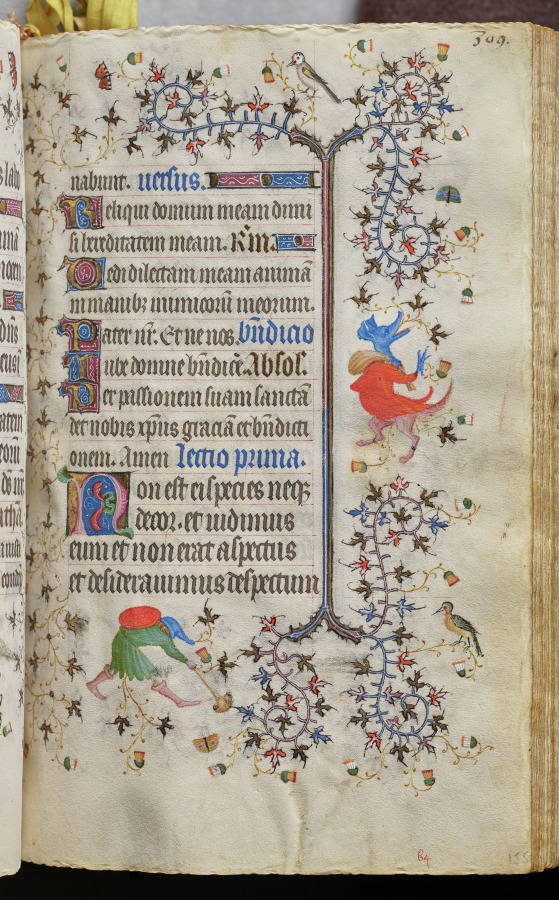 309.
nabunt. uersus.
Reliqui domum meam dimi
si hereditatem meam. R̄m.
Dedi dilectam meam animā
in manibꝫ inimicorū meorum.
Pater nr̄. Et ne nos. bn̄dicio
Iube domne bn̄dicē. Absol.
Per passionem suam sanctā
det nobis xp̄us graciā et bn̄dicti
onem. Amen Lectio prima.
Non est ei species neqꝫ
decor. et uidimus
eum et non erat aspectus
et desiderauimus despectum